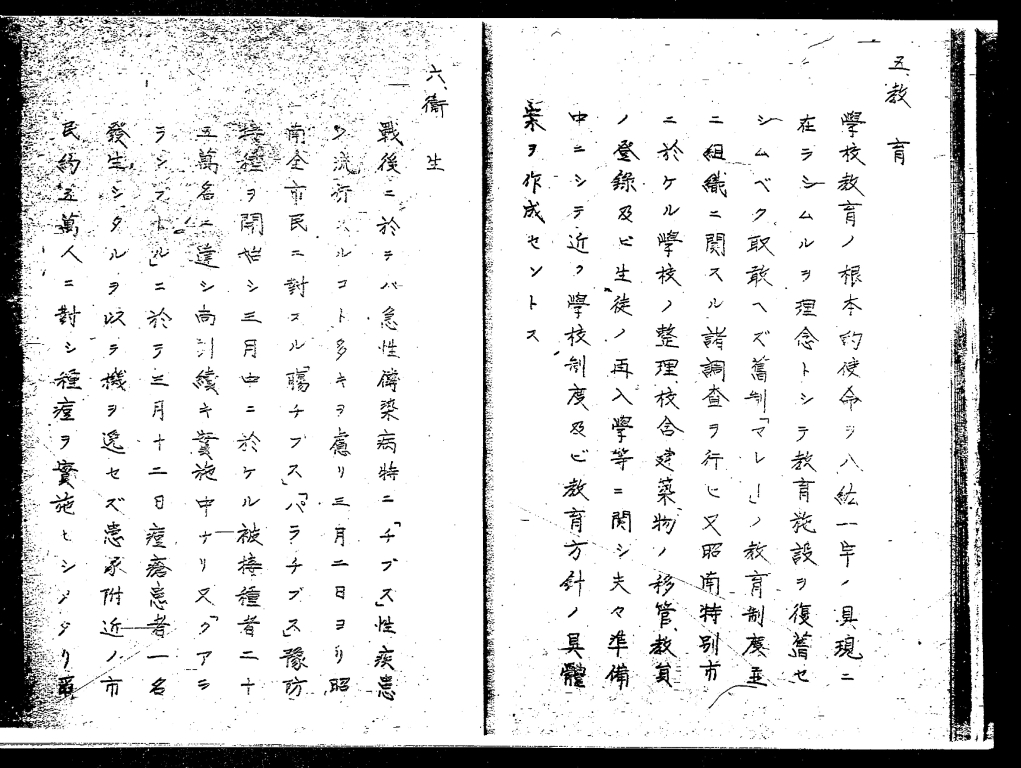 五、教育
學校教育ノ根本的使命ヲ八紘一宇ノ具現ニ
在ラシムルヲ理念トシテ教育施設ヲ復舊セ
シムベク取敢ヘズ舊制「マレー」ノ教育制度並
ニ組織ニ関スル諸調査ヲ行ヒ又昭南特別市
ニ於ケル學校ノ整理校舎建築物ノ移管教員
ノ登録及ビ生徒ノ再入學等ニ関シ夫々準備
中ニシテ近ク學校制度及ビ教育方針ノ具體
案ヲ作成セントス
六、衛生
戰後ニ於テハ急性傳染病特ニ「チブス」性疾患
ノ流行スルコト多キヲ慮リ三月二日ヨリ昭
南全市民ニ對スル膓チブス」「パラチブス」豫防
接種ヲ開始シ三月中ニ於ケル被接種者二十
五萬名ニ達シ尚引續キ實施中ナリ又「クアラ
ランプトル」ニ於テ三月十二日痘瘡患者一名
發生シタルヲ以テ機ヲ逸セズ患家附近ノ市
民約五萬人ニ對シ種痘ヲ實施セシメタリ爾